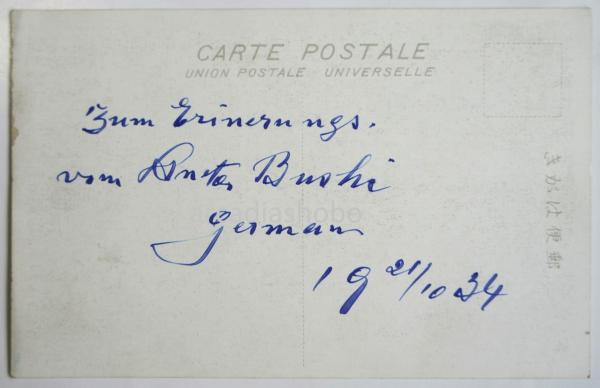 CARTE POSTALE
UNION POSTALE UNIVERSELLE
Zum Erinerungs.
vom Bushi
German
19 21/10 34
きがは便郵